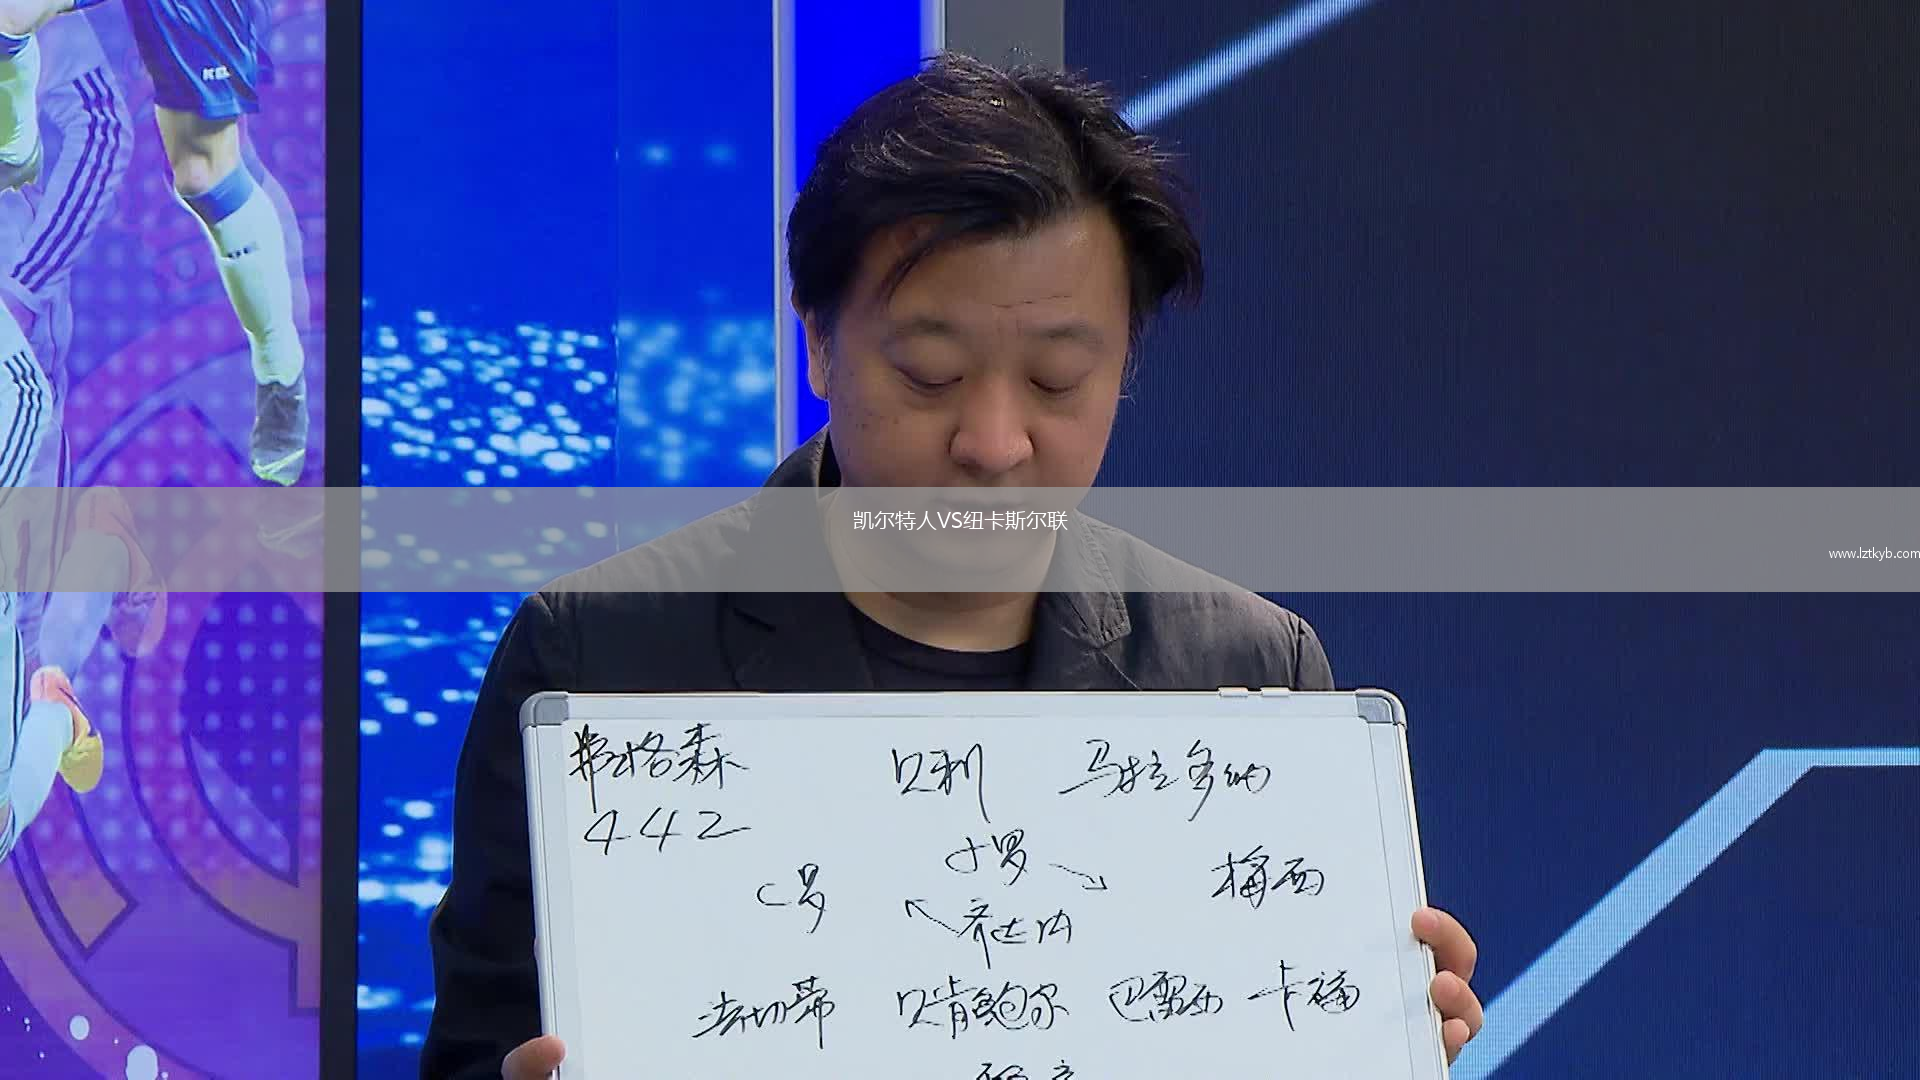 凯尔特人VS纽卡斯尔联
www.lztkyb.com
弗格森 贝利 马拉多纳
442
小罗
C罗 梅西
齐达内
法切蒂 贝肯鲍尔 巴雷西 卡福